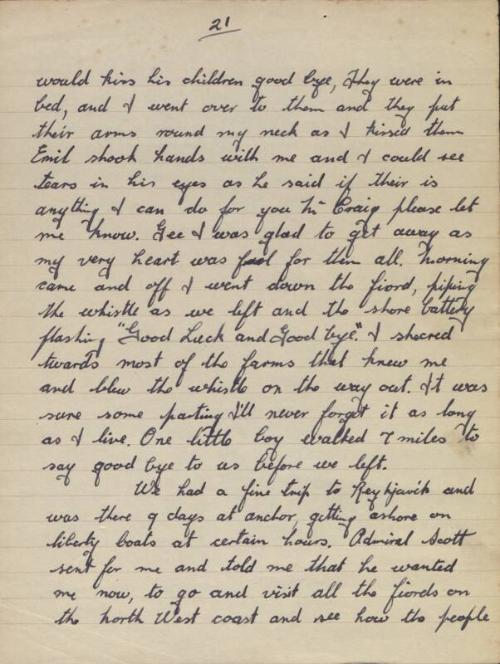 21
would kiss his children good bye, They were in
bed, and I went over to them and they put
their arms round my neck as I kissed them
Emil shook hands with me and I could see
tears in his eyes as he said if their is
anything I can do for you Mr Craig please let
me know. Gee I was glad to get away as
my very heart was full for them all. Morning
came and off I went down the fiord, piping
the whistle as we left and the shore battery
flashing "Good Luck and Good bye". I sheered
towards most of the farms that knew me
and blew the whistle on the way out. It was
sure some parting I'll never forget it as long
as I live. One little boy walked 7 miles to
say good bye to us before we left.
We had a fine trip to Reykjavik and
was there 9 days at anchor, getting ashore on
liberty boats at certain hours. Admiral Scott
sent for me and told me that he wanted
me now, to go and visit all the fiords on
the North West coast and see how the people